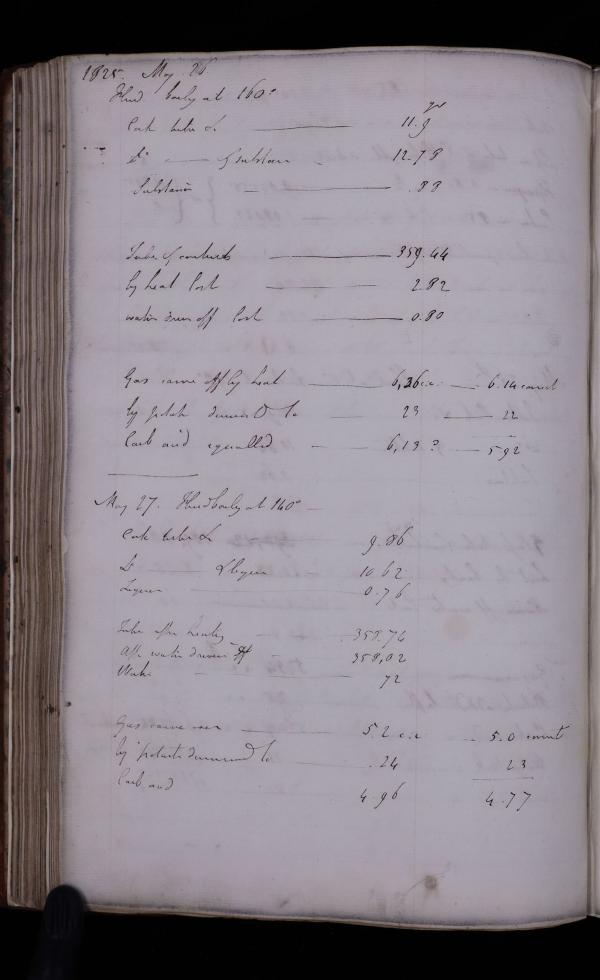 1825. May 26
Fluid boily at 160°
grs
Cork tube &c ——— 11.9
Do ——— & substance 12.78
Substance ——— .88
Tube & contents ——— 359.44
by heat lost ——— 2.82
water driven off lost ——— 0.80
Gas came off by heat ——— 6,36 c.i. ——— 6.14 correct
by potash diminished to ——— 23 ——— 22
Carb acid equalled ——— 6,13 ? ——— 5 92
May 27. Fluid boily at 140°
Cork tube & 9.86
Do ——— & liquor 10.62
Liquor ——— 0.76
Tube after heating ——— 358.74
After water driven off 358,02
Water ——— 72
Gas came over ——— 5.2 c.i. ——— 5.0 correct
by potash diminished to ——— .24 23
Carb acid 4.96 4.77